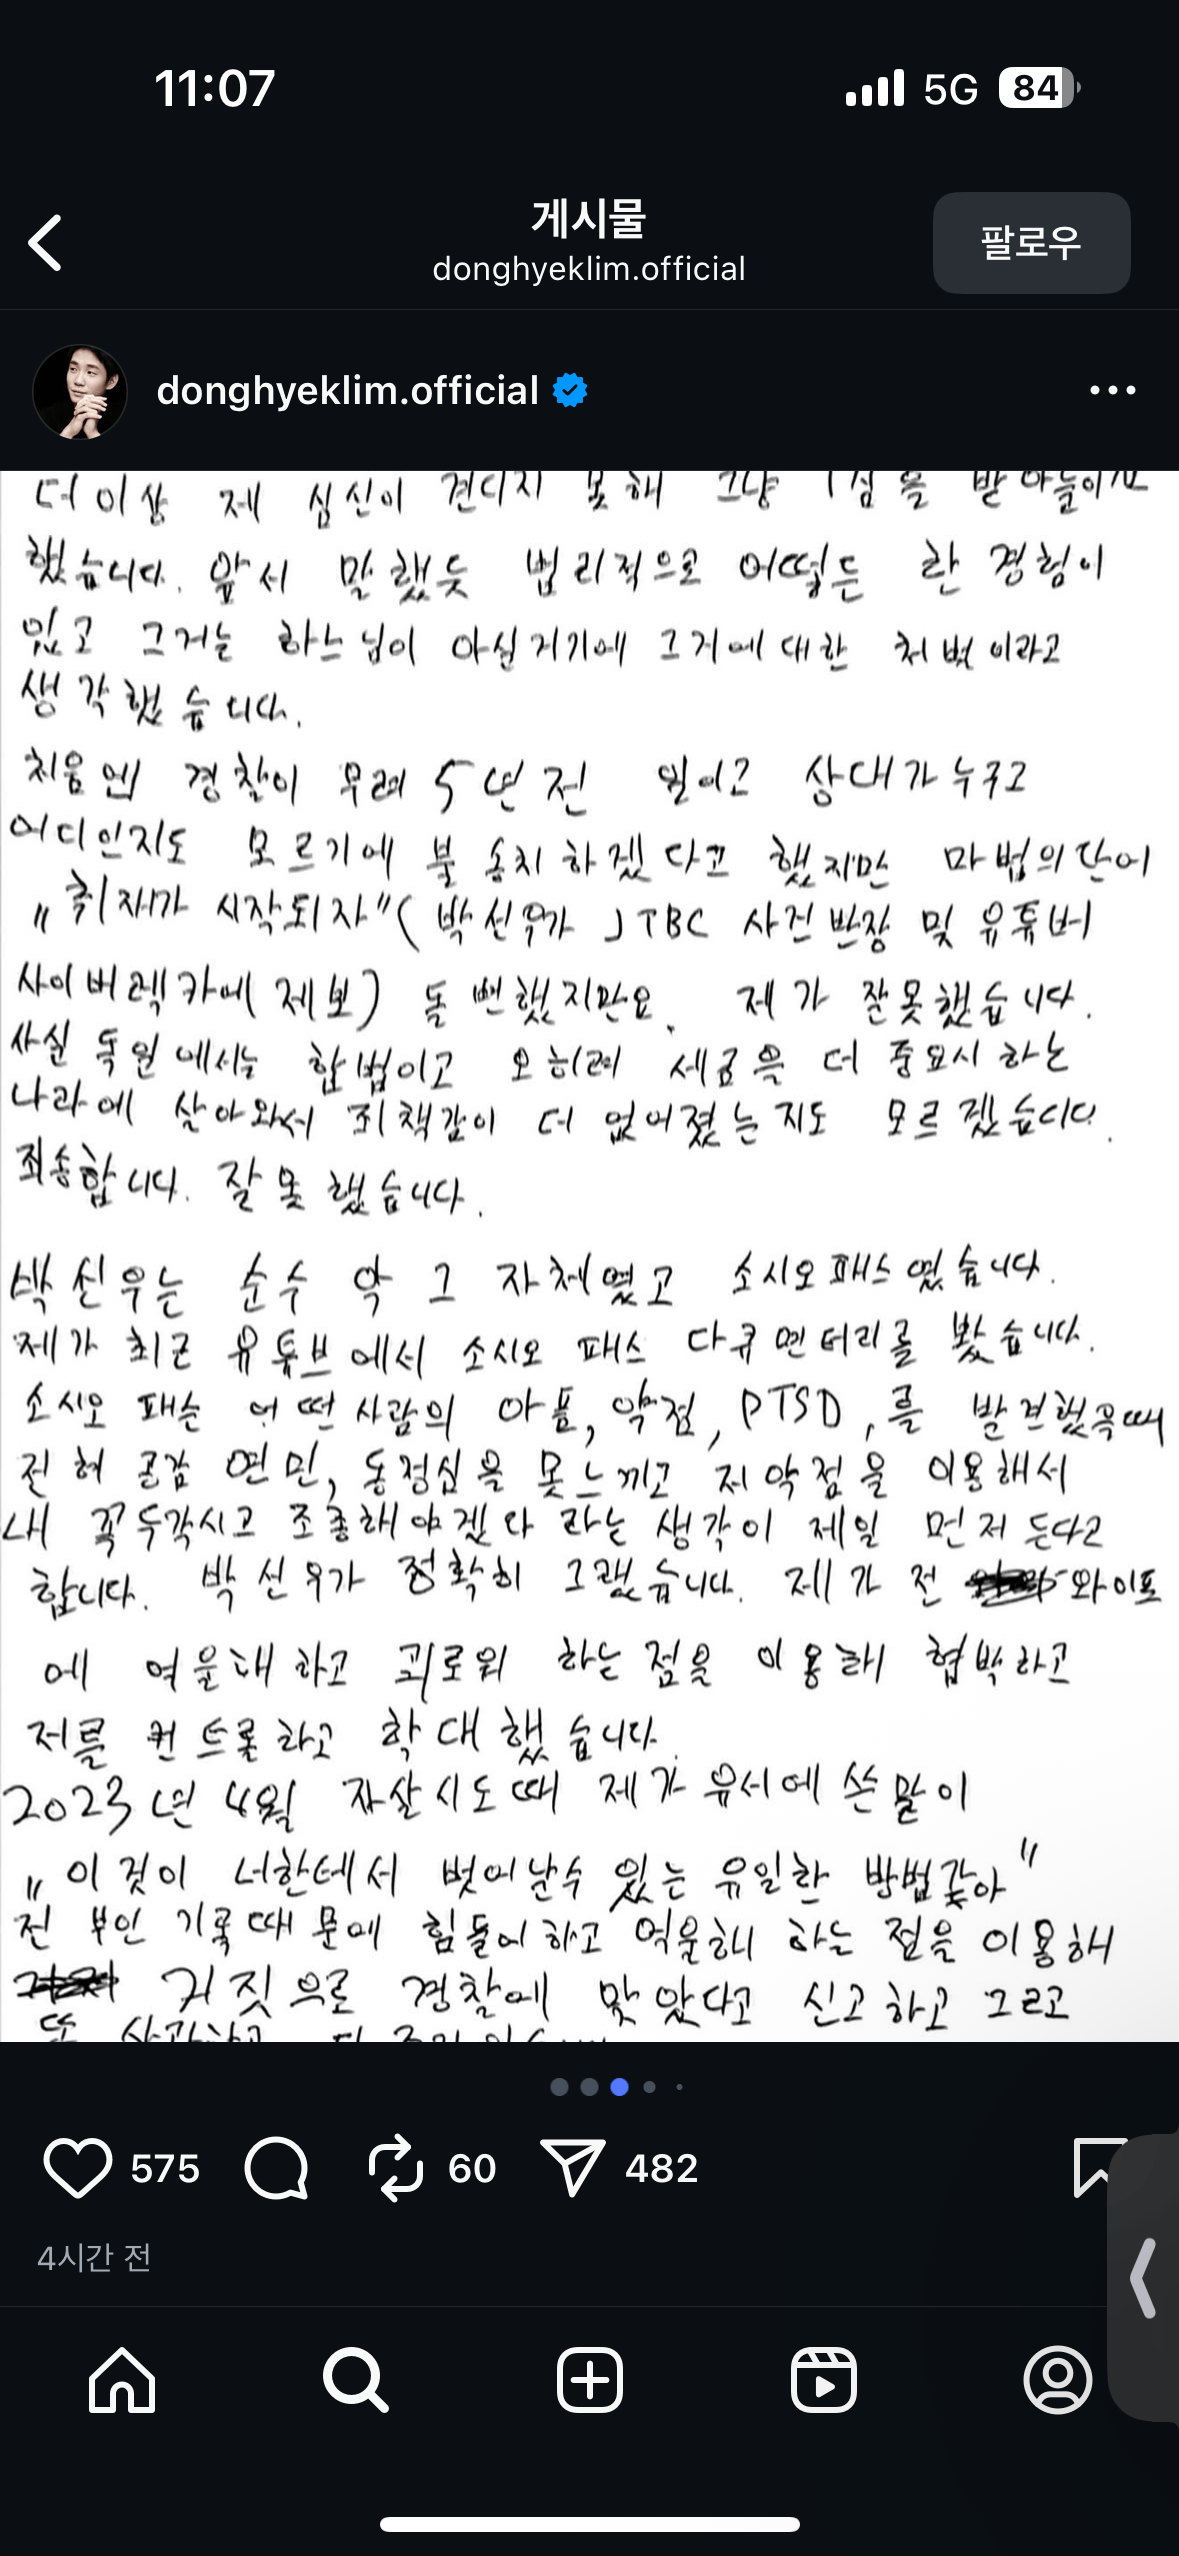 11:07
5G 84
게시물
donghyeklim.official
팔로우
donghyeklim.official
더이상 제 심신이 견디지 못해 그냥 1심을 받아들이고
했습니다. 앞서 말했듯 법리적으로 어떻든 한 경험이
있고 그거는 하느님이 아실거기에 그거에 대한 처벌이라고
생각했습니다.
처음엔 경찰이 무려 5년전 일이고 상대가 누구고
어디인지도 모르기에 불송치하겠다고 했지만 마법의단어
"취재가 시작되자" (박선우가 JTBC 사건반장 및 유튜버
사이버렉카에 제보) 돌변했지만요. 제가 잘못했습니다.
사실 독일에서는 합법이고 오히려 세금을 더 중요시 하는
나라에 살아와서 죄책감이 더 없어졌는지도 모르겠습니다.
죄송합니다. 잘못했습니다.
박선우는 순수 악 그 자체였고 소시오패스였습니다.
제가 최근 유튜브에서 소시오패스 다큐멘터리를 봤습니다.
소시오패슨 어떤사람의 아픔, 약점, PTSD,를 발견했을때
전혀 공감 연민, 동정심을 못느끼고 저 약점을 이용해서
내 꼭두각시고 조종해야겠다 라는 생각이 제일 먼저 든다고
합니다. 박선우가 정확히 그랬습니다. 제가 전 와이프
에 억울해하고 괴로워 하는 점을 이용해 협박하고
저를 컨트롤하고 학대했습니다.
2023년 4월 자살시도때 제가 유서에 쓴 말이
"이것이 너한테서 벗어날수 있는 유일한 방법같아"
전 부인 기록때문에 힘들어하고 억울해 하는 점을 이용해
거짓으로 경찰에 맞았다고 신고하고 그러고
또
575
60
482
4시간 전